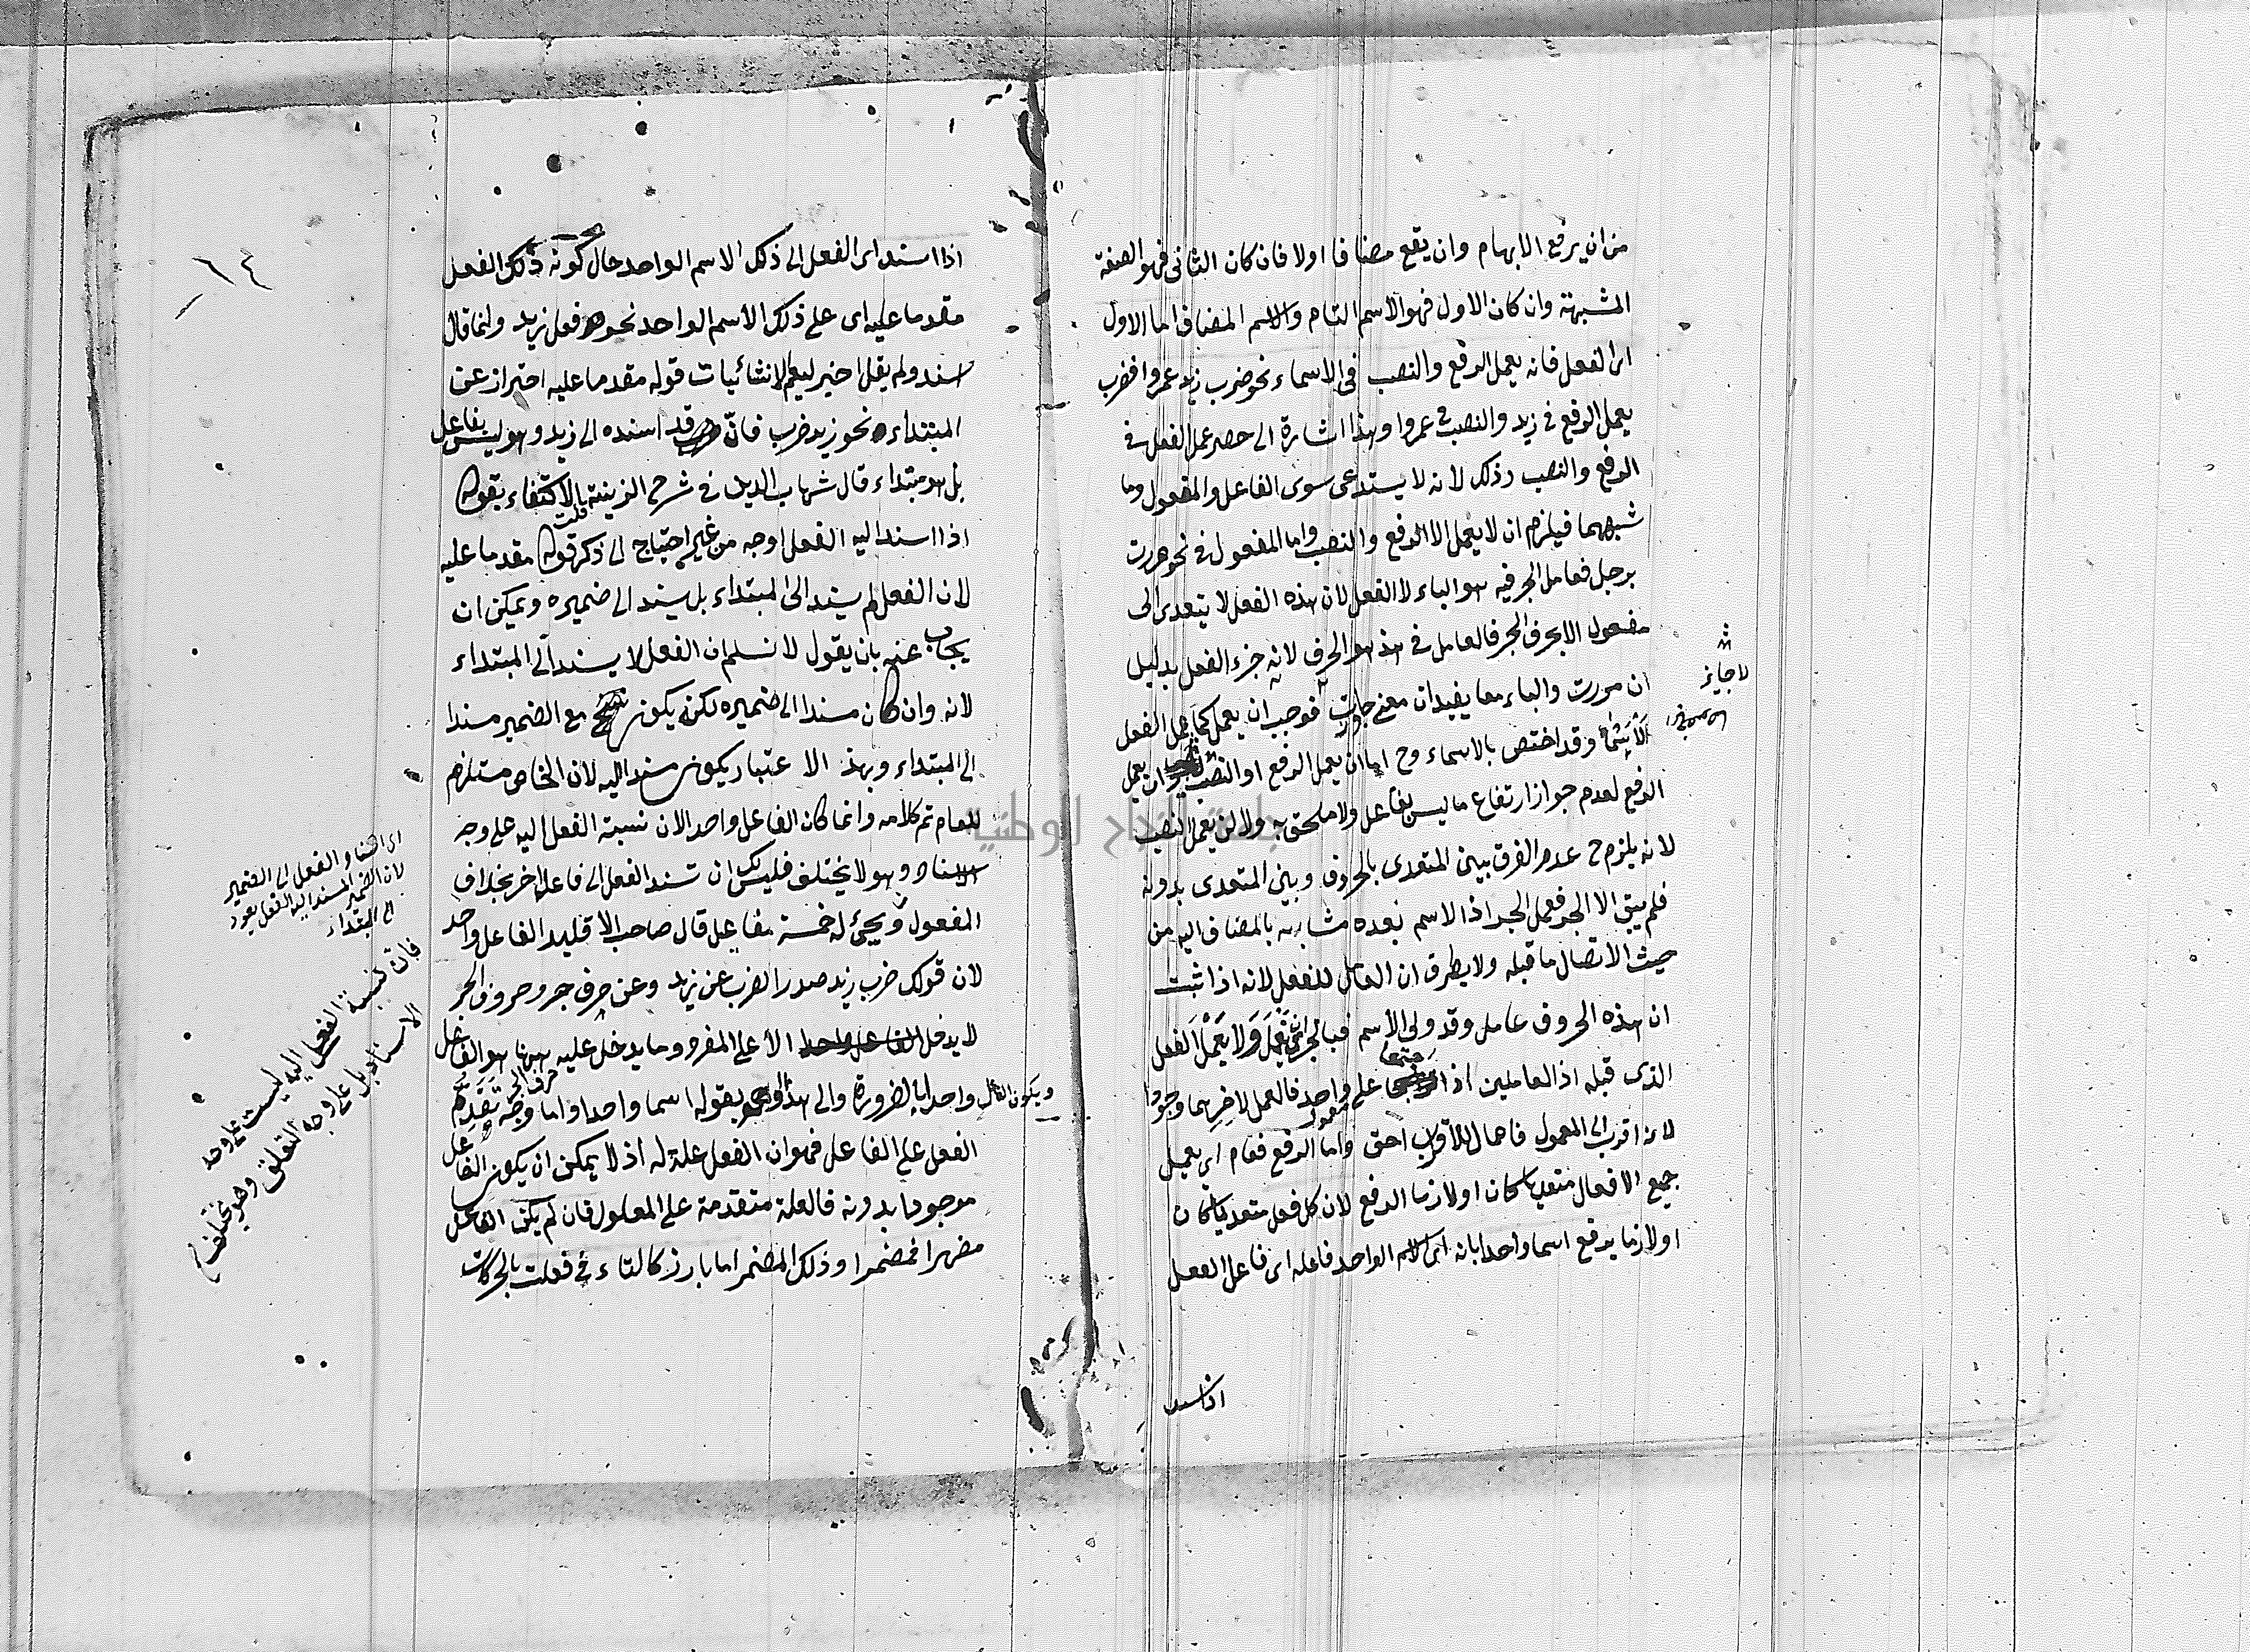 من ان يرفع الابهام وان يقع مضافا اولا فان كان الثانى فهو الصفة
المشبهة وان كان الاول فهو الاسم التام والاسم المضاف اما الاول
اى الفعل فانه يعمل الرفع والنصب فى الاسماء نحو ضرب زيد عمروا فضرب
يعمل الرفع فى زيد والنصب فى عمروا وهذا اشارة الى حصر عمل الفعل فى
الرفع والنصب وذلك لانه لا يستدعى سوى الفاعل والمفعول وما
شبههما فيلزم ان لا يعمل الا الرفع والنصب واما المفعول فى نحو مررت
برجل فعامل الجر فيه هو الباء لا الفعل لان هذه الفعل لا يتعدى الى
مفعول الا بحرف الجر فالعامل فى هذ هو الحرف لانه جزء الفعل بدليل
ان مررت والباء معا يفيدان معنى جاوزت فوجب ان يعمل كما عمل الفعل
وقد اختص بالاسماء وح اما ان يعمل الرفع او النصب ان يعمل
الرفع لعدم جواز ارتفاع ما ليس بفاعل ولا ملحق به ولا ان يعمل النصب
لانه يلزم ح عدم الفرق بين المتعدى بالحروف وبين المتعدى بدونه
فلم يبق الا الجر فعمل الجر اذ الاسم بعده مشابه بالمضاف اليه من
حيث الاتصال ما قبله ولا يطرق ان العامل للفعل لانه اذا ثبت
ان هذه الحروف عامل وقد ولى الاسم فبالحرى ان تعمل ولا يعمل الفعل
الذى قبله اذ العاملين اذا اجتمعا على معمول واحد فالعمل لاخرهما وجودا
لانه اقرب الى المعمول فاعمال الاقرب احق واما الرفع فعام اى يعمل
جميع الافعال متعديا كان او لازما الرفع لان كل فعل متعديا كان
او لازما يرفع اسما واحدا بانه اى الاسم الواحد فاعله اى فاعل الفعل
لا جايز
اذا اسند
١٤
اذا اسند اى الفعل الى ذلك الاسم الواحد حال كونه ذلك الفعل
مقدما عليه اى على ذلك الاسم الواحد نحو فعل زيد وانما قال
اسند ولم يقل اخبر ليعم الانشائيات قوله مقدما عليه احتراز عن
المبتداء نحو زيد ضرب فان ضرب قد اسنده الى زيد وهو ليس بفاعل
بل هو مبتداء قال شهاب الدين فى شرح الزينية بالاكتفاء بقوله
اذا اسند اليه الفعل اوجه من غير احتياج الى ذكر قوله مقدما عليه قلت
لان الفعل لم يسند الى المبتداء بل يسند الى ضميره ويمكن ان
يجاب عنه بان يقول لا نسلم ان الفعل لا يسند الى المبتداء
لانه وان كان مسندا الى ضميره لكنه يكون مع الضمير مسندا
الى المبتداء وبهذ الاعتبار يكون مسندا اليه لان الخاص مستلزم
للعام تم كلامه وانما كان الفاعل واحد الان نسبة الفعل اليه على وجه
الاسناد وهو لا يختلف فليس لك ان تسند الفعل الى فاعل اخر بخلاف
المفعول ويجئ له خمسة مفاعيل قال صاحب الاقليد الفاعل واحد
لان قولك ضرب زيد صدر الضرب عن زيد وعن حرف جر وحروف الجر
لا يدخل الا على المفرد وما يدخل عليه حرف الجر ههنا هو الفاعل
ويكون الفاعل واحدا بالضرورة والى هذا بقوله اسما واحدا واما وجه تقدم
الفعل على الفاعل فهو ان الفعل علة له اذ لا يمكن ان يكون الفاعل
موجودا بدونه فالعلة متقدمة على المعلول فان لم يكن الفاعل
مضهرا فمضمرا وذلك المضمر اما بارز كالتاء فى فعلت بالحركات
اى اسناد الفعل الى الضمير
لان الضمير المسند اليه الفعل يعود
الى المبتداء
فان نسبة الفعل اليه ليست على وجه
الاسناد بل على وجه التعلق وهو يختلف
جامعة النجاح الوطنية